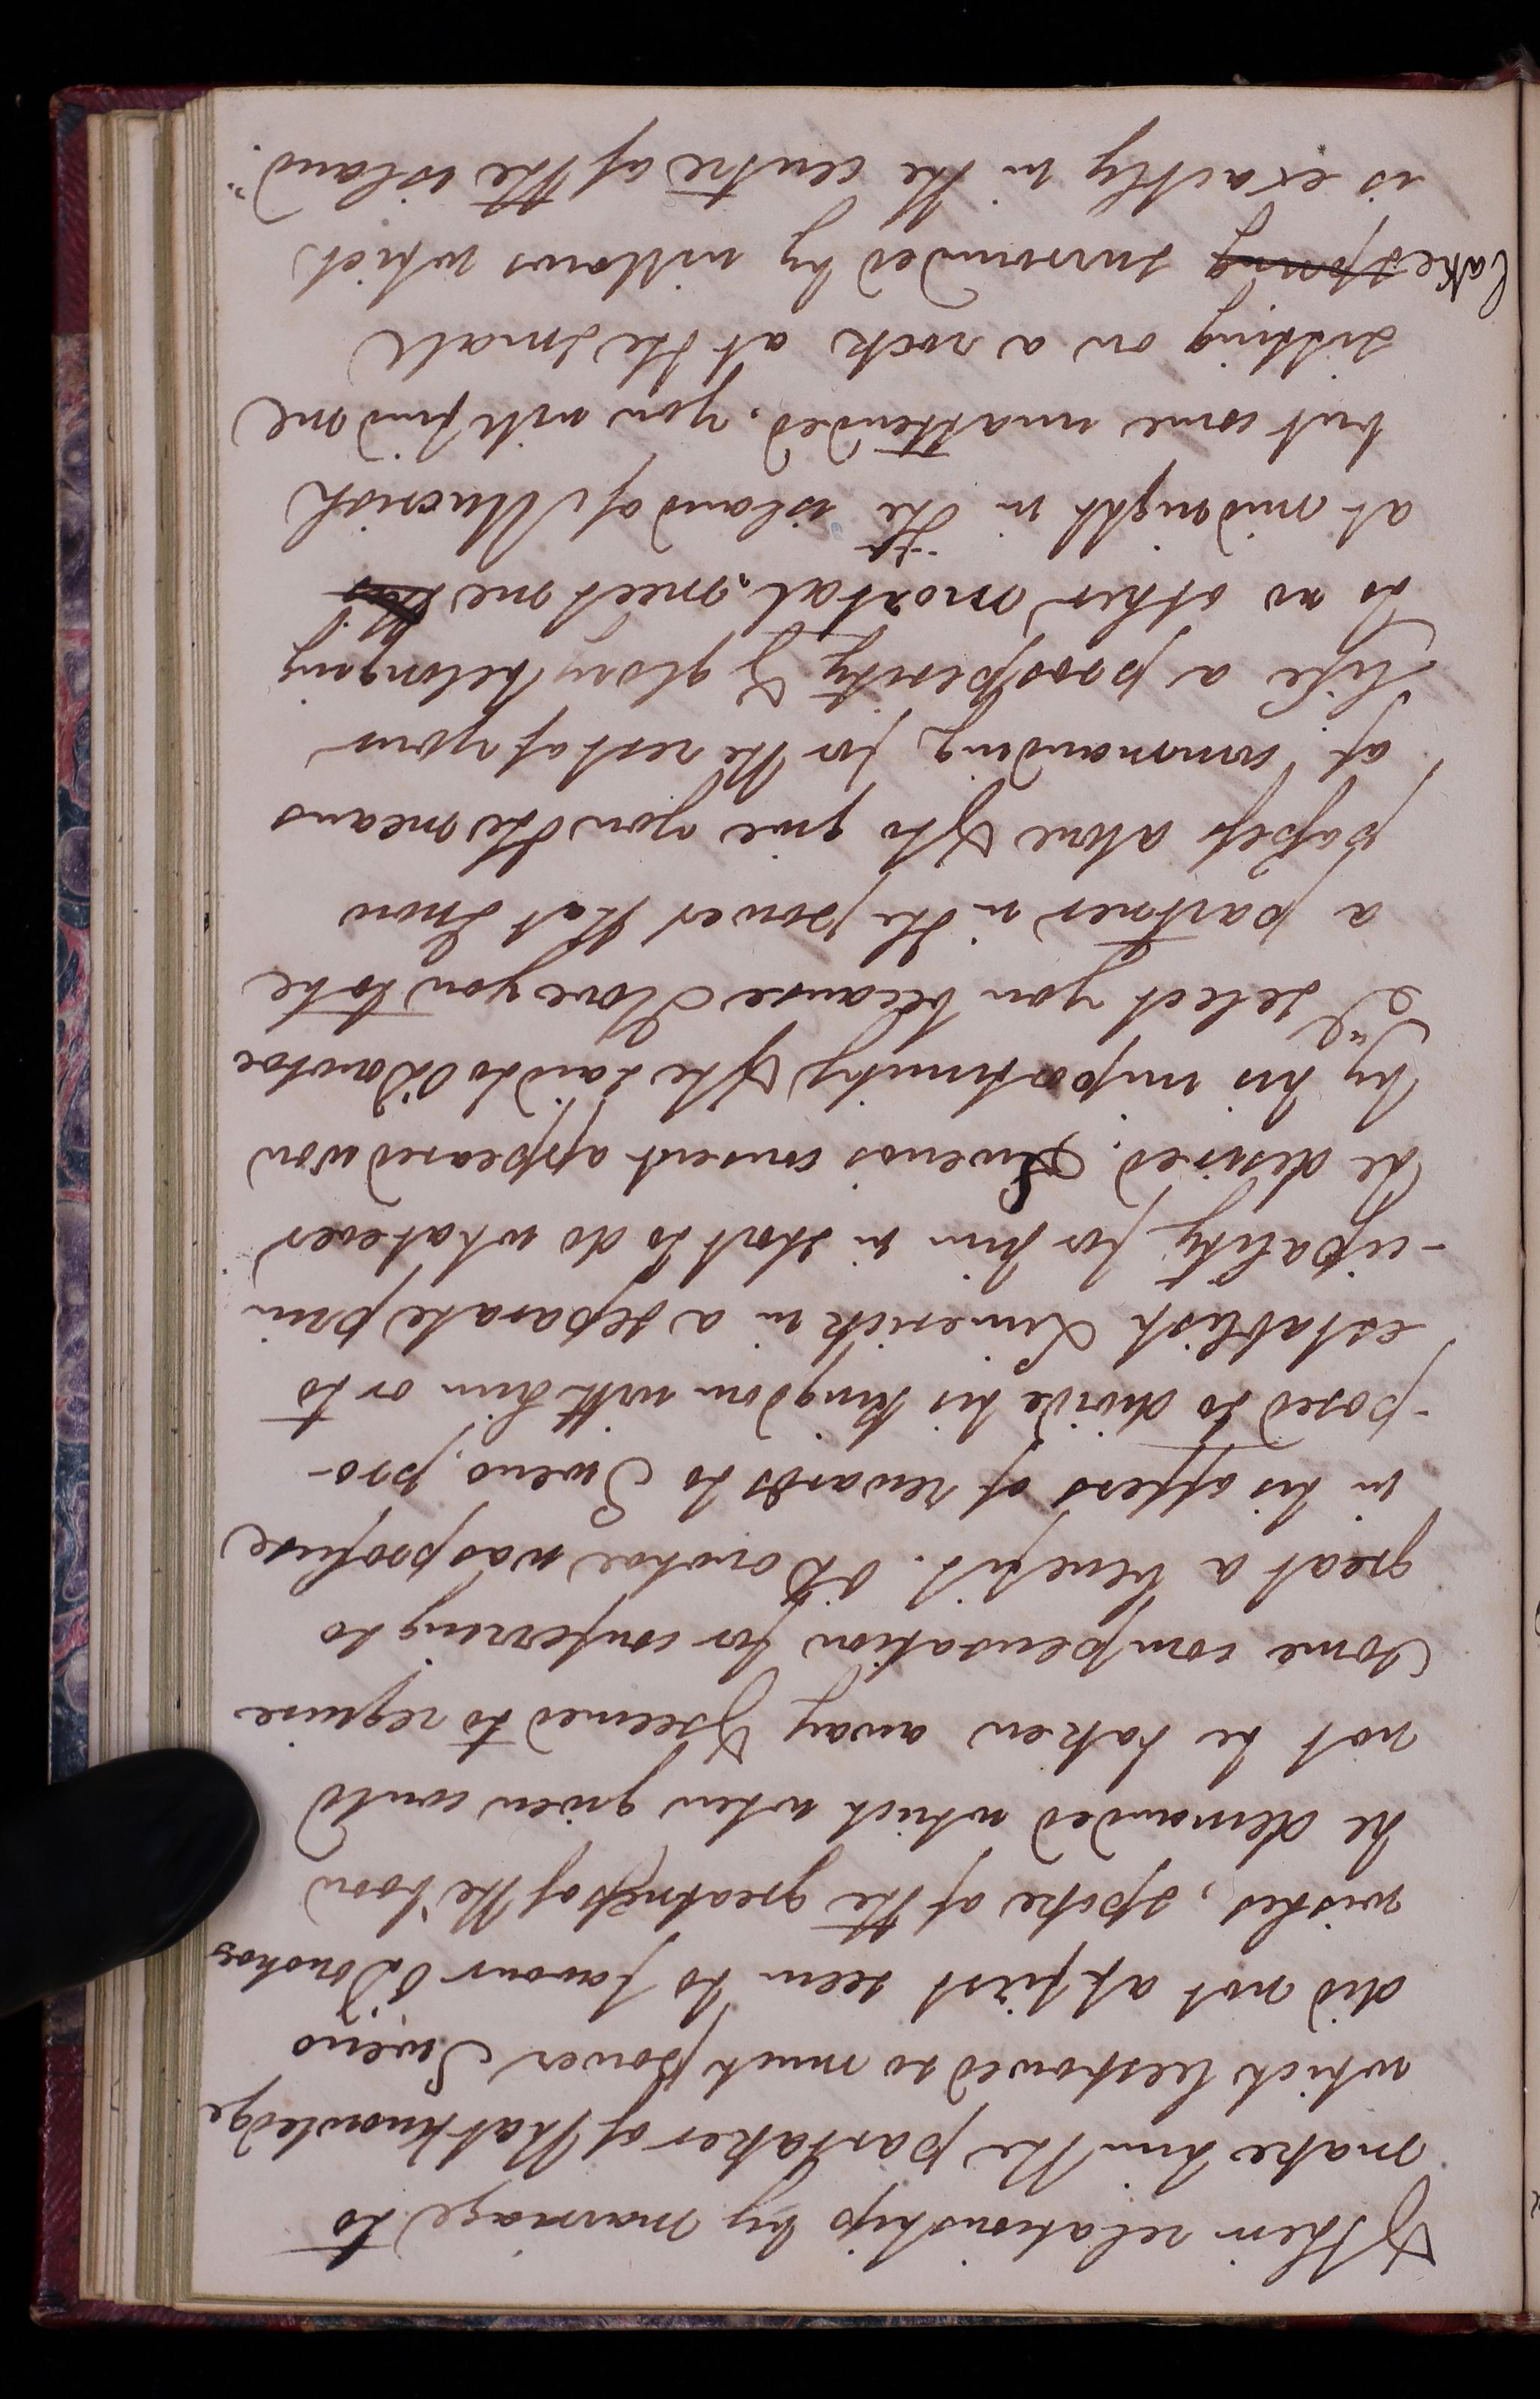 & their relationship by marriage to
make him the partaker of that knowledge
which bestowed so much power Sweno
did not at first seem to favour O'Donohoes
wishes, spoke of the greatness of the boon
he demanded which when given could
not be taken away & seemed to require
some compensation for conferring so
great a benefit. O'Donohoe was profuse
in his offers of rewards to Sweno, pro-
-posed to divide his kingdom with him or to
establish Limerick in a separate prin
-cipality for him in short to do whatever
he desired. Swenos consent appeared won
by his importunity & he said to O'Donohoe
"I select you because I love you to be
a partner in the power that I now
possess alone & to give you the means
of commanding for the rest of your
life a prosperity & glory belonging
to no other mortal, meet me
at midnight in the island of
but come unattended, you will find me
sitting on a rock at the small
lake spring surrounded by willows which
is exactly in the centre of the island".